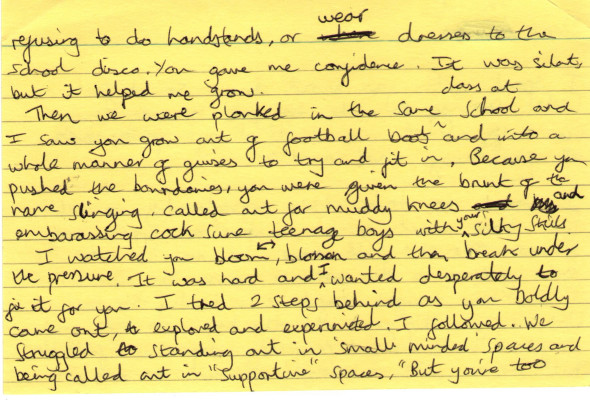 refusing to do handstands, or wear dresses to the
school disco. You gave me confidence. It was silent,
but it helped me grow.
Then we were plonked in the same class at school and
I saw you grow out of football boots and into a
whole manner of guises to try and fit in, Because you
pushed the boundaries, you were given the brunt of the
name slinging, called out for muddy knees and
embarassing cock sure teenage boys with your silky skills.
I watched you bloom, blossom and then break under
the pressure. It was hard and I wanted desperately to
fix it for you. I tred 2 steps behind as you boldly
came out, explored and experimented. I followed. We
struggled standing out in 'small minded' spaces and
being called out in "supportive" spaces, "But you're too